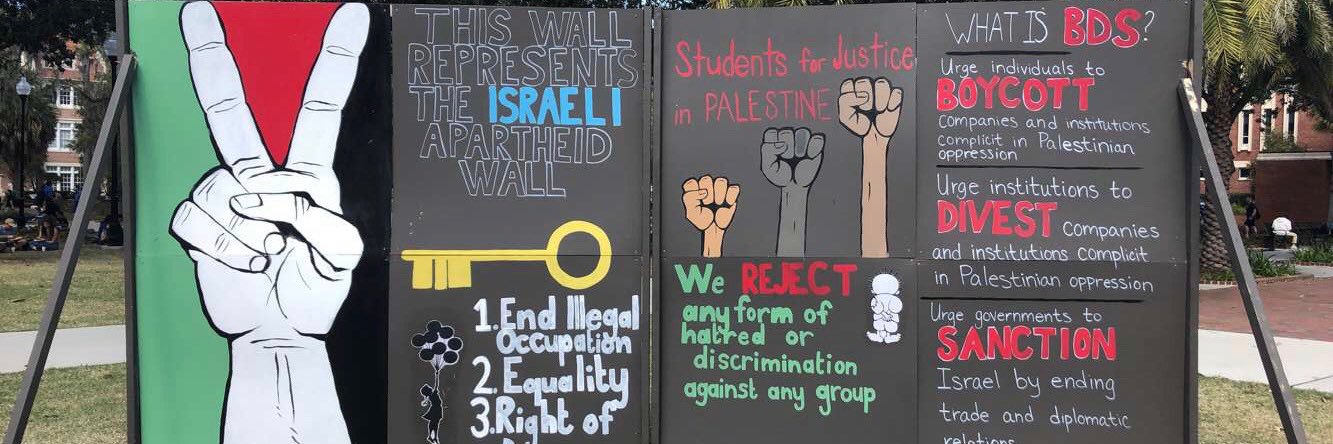 THIS WALL
REPRESENTS
THE ISRAELI
APARTHEID
WALL
1. End Illegal
Occupation
2. Equality
3. Right of
Students for Justice
in PALESTINE
We REJECT
any form of
hatred or
discrimination
against any group
WHAT IS BDS?
Urge individuals to
BOYCOTT
companies and institutions
complicit in Palestinian
oppression
Urge institutions to
DIVEST companies
and institutions complicit
in Palestinian oppression
Urge governments to
SANCTION
Israel by ending
trade and diplomatic
relations